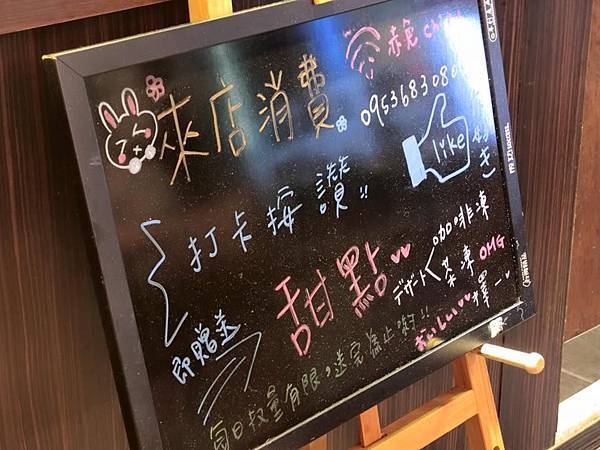 來店消費
0953683080
打卡按讚!!
like
好き
即贈送
甜點
デザート
咖啡凍
茶凍
OMG
擇一
おいしい
每日數量有限,送完為止喲!!